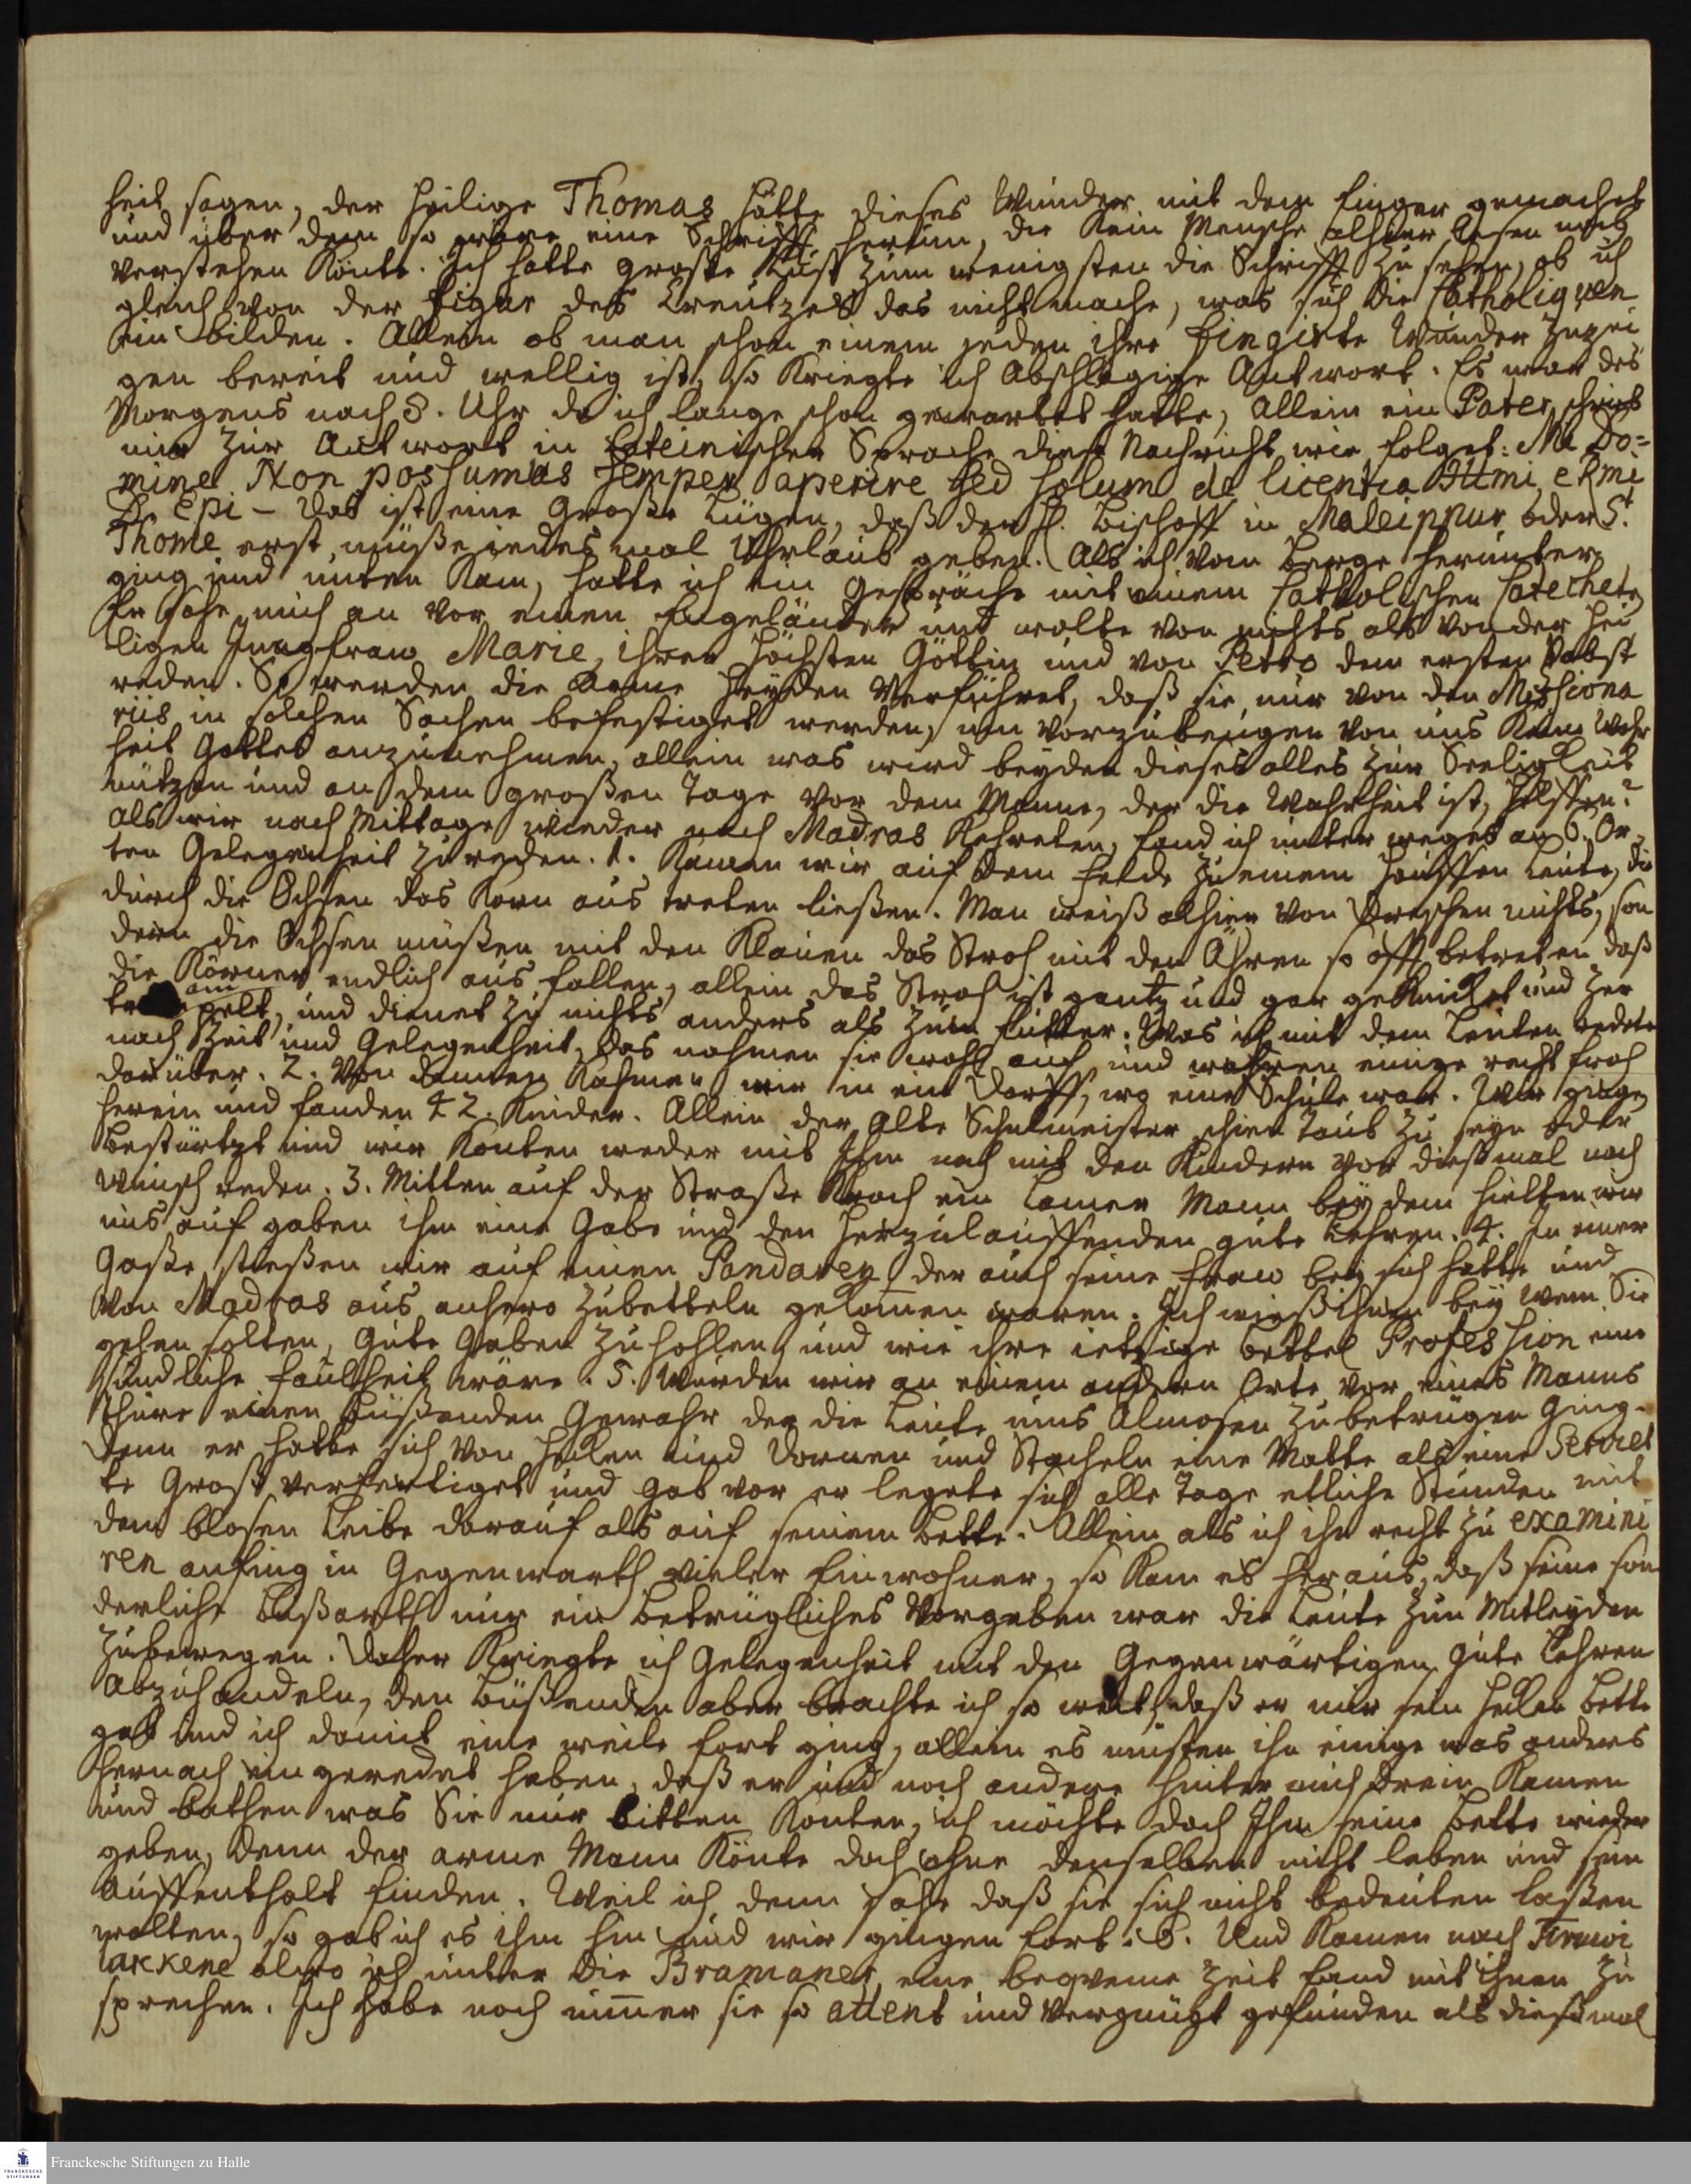 heit sagen, der heilige Thomas hätte dieses Wunder mit dem finger gemachet
und über dem so wäre eine Schrifft herum, die Kein Mensche alhier lesen noch
verstehen Könte. Ich hatte große Lust zum wenigsten die Schrifft zu sehen, ob ich
gleich von der figur des Creutzes das nicht mache, was sich die Catholiquen
ein bilden. Allein ob man schon einem jeden ihre fingirte Wunder zuzei
gen bereit und wellig ist, so Kriegte ich Abschlägige Antwort. Es war des
Morgens nach 8. Uhr da ich lange schon gewartet hatte, Allein ein Pater schrieb
mir zur Antwort in Lateinischer Sprache diese Nachricht wie folget: Mi Do=
mine Non poshumus semper aperire sed solum de licentia Illmi e Rmi
D. Epi – Das ist eine Große Lügen, daß der H. Bischoff in Maleippur oder St.
Thome erst müße iedes mal Uhrlaub geben. Als ich vom Berge herunter
ging und unten Kam, hatte ich ein Gespräche mit einem Catholischen Catecheten
Er sahe mich an vor einen Engeländer und wolte von nichts als von der hei
ligen Jungfrau Marie, ihrer höchsten Göttin und von Petro dem ersten Pabst
reden. So werden die Arme Heyden Verführet, daß sie nur von den Misshiona
riis in solchen Sachen befestiget werden, um vorzubeugen von uns Keine Wahr
heit Gottes anzunehmen, allein was wird beyden dieses alles zur Seeligkeit
nützen und an dem großen Tage vor dem Manne, der die Wahrheit ist, helffen?
Als wir nach Mittage wieder nach Madras Kehreten, fand ich unter weges an 6. Or-
ten Gelegenheit zu reden. 1. Kamen wir auf dem Felde zu einem Hauffen Leute, die
durch die Ochsen das Korn aus treten ließen. Man weiß alhier von Dreschen nichts, son
dern die Ochsen müßen mit den Klauen das Stroh mit den Ähren so offt betreten daß
die Körner endlich aus fallen, allein das Stroh ist gantz und gar geknicket und zer
trampelt, und dienet zu nichts anders als zum futter. Was ich mit dem Leuten redete
nach Zeit und Gelegenheit, das nahmen sie wohl auf, und wahren einige recht froh
darüber. 2. Von dannen Kahmen wir in ein Dorff, wo eine Schule war. Wir gingen
herein und fanden 42. Kinder. Allein der Alte Schulmeister schien Taub zu seyn oder
bestürtzt und wir Konten weder mit Ihm noch mit den Kindern vor dießmal nach
Wunsch reden. 3. Mitten auf der Straße Kroch ein Lamer Mann bey dem hielten wir
uns auf gaben ihm eine Gabe und den Herzulauffenden gute Lehren. 4. In einer
Gaße stießen wir auf einen Pandaren der auch seine frau bey sich hatte und
von Madras aus anhero zubetteln gekomen waren. Ich wieß ihnen bey wem Sie
gehen solten, Gute Gaben zu hohlen und wie ihre ietzige bettel Profeshion eine
sündliche faulheit wäre. 5. Wurden wir an einem andern Orte vor eines Manns
thüre einen Büßenden Gewahr der die Leute ums Almosen zu betrügen Ging.
Denn er hatte sich von und Dornen und Stacheln eine Matte als eine
te Groß verfertiget und Gab vor er legete sich alle Tage etliche Stunden mit
dem blosen Leibe darauf als auf seinem bette. Allein als ich ihn recht zu examini
ren anfing in Gegenwarth vieler Einwohner, so Kam es heraus, daß seine son
derliche Bußarth nur ein betrügliches Vorgeben war die Leute zum Mitleyden
zubewegen. Daher Kriegte ich Gelegenheit mit den Gegenwärtigen Gute Lehren
Abzuhandeln, den Büßenden aber brachte ich so weit, daß er mir sein bette
gab und ich damit eine weile fort ging, allein es müsten ihn einige was anders
hernach eingeredet haben, daß er und noch andere hinter mich drein Kamen
und bathen was Sie nur bitten Konten, ich möchte doch Ihm seine bette wieder
geben, denn der arme Mann Könte doch ohne denselben nicht leben und sein
Auffenthalt finden. Weil ich denn sahe daß sie sich nicht bedeuten laßen
wolten, so gab ich es ihm hin und wir gingen fort. 6. Und Kamen nach Tiruwi
lakkene alwo ich unter die Bramaner eine beqveme Zeit fand mit ihnen zu
sprechen. Ich habe noch nimer sie so attent und Vergnügt gefunden als dießmal
Franckesche Stiftungen zu Halle